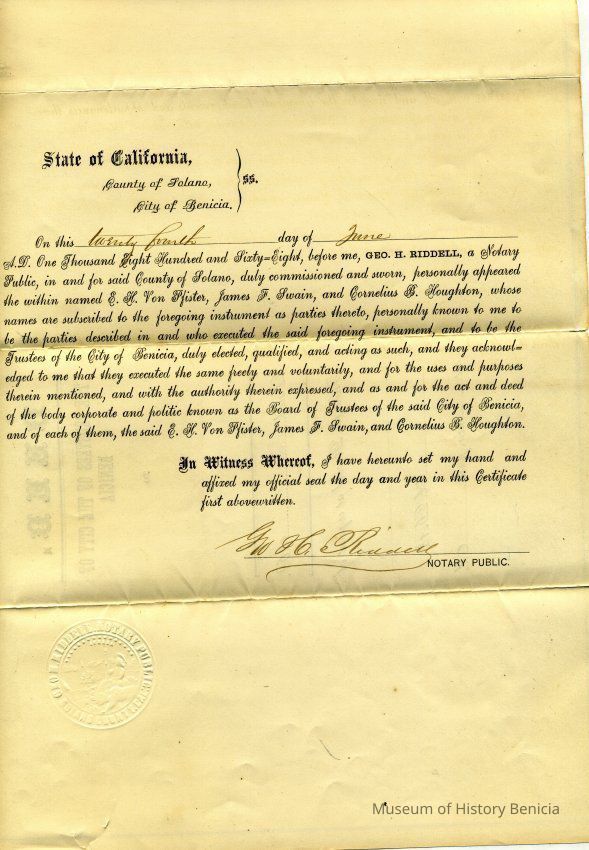 State of California,
County of Solano,
City of Benicia.
ss.
On this twenty fourth day of June
A.D. One Thousand Eight Hundred and Sixty-Eight, before me, GEO. H. RIDDELL, a Notary
Public, in and for said County of Solano, duly commissioned and sworn, personally appeared
the within named E. H. Von Pfister, James F. Swain, and Cornelius B. Houghton, whose
names are subscribed to the foregoing instrument as parties thereto, personally known to me to
be the parties described in and who executed the said foregoing instrument, and to be the
Trustees of the City of Benicia, duly elected, qualified, and acting as such, and they acknowl=
edged to me that they executed the same freely and voluntarily, and for the uses and purposes
therein mentioned, and with the authority therein expressed, and as and for the act and deed
of the body corporate and politic known as the Board of Trustees of the said City of Benicia,
and of each of them, the said E. H. Von Pfister, James F. Swain, and Cornelius B. Houghton.
In Witness Whereof, I have hereunto set my hand and
affixed my official seal the day and year in this Certificate
first abovewritten.
Geo H. Riddell
NOTARY PUBLIC.
GEO. H. RIDDELL NOTARY PUBLIC
Museum of History Benicia